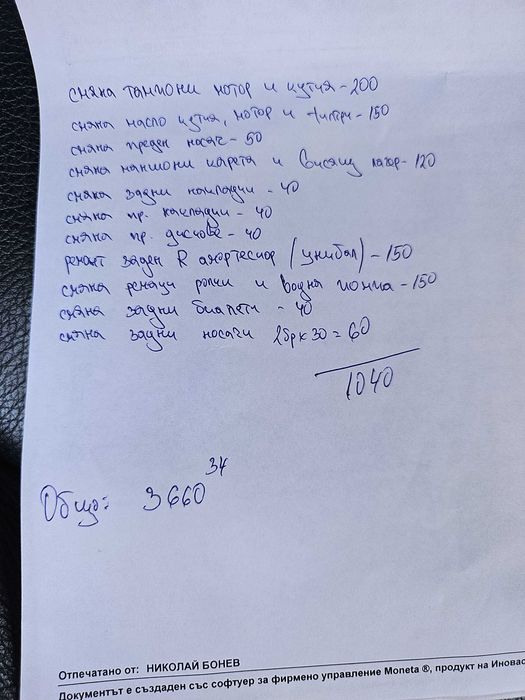 смяна тампони мотор и кутия - 200
смяна масло кутия, мотор и филтри - 150
смяна преден носач - 50
смяна маншони карета и висящ лагер - 120
смяна задни накладки - 40
смяна пр. накладки - 40
смяна пр. дискове - 40
ремонт заден R амортесиор (унибал) - 150
смяна ремъци ролки и водна помпа - 150
смяна задни биалети - 40
смяна задни носачи 2бр x 30 = 60
1040
Общо: 3660 34
Отпечатано от: НИКОЛАЙ БОНЕВ
Документът е създаден със софтуер за фирмено управление Moneta ®, продукт на Иновас